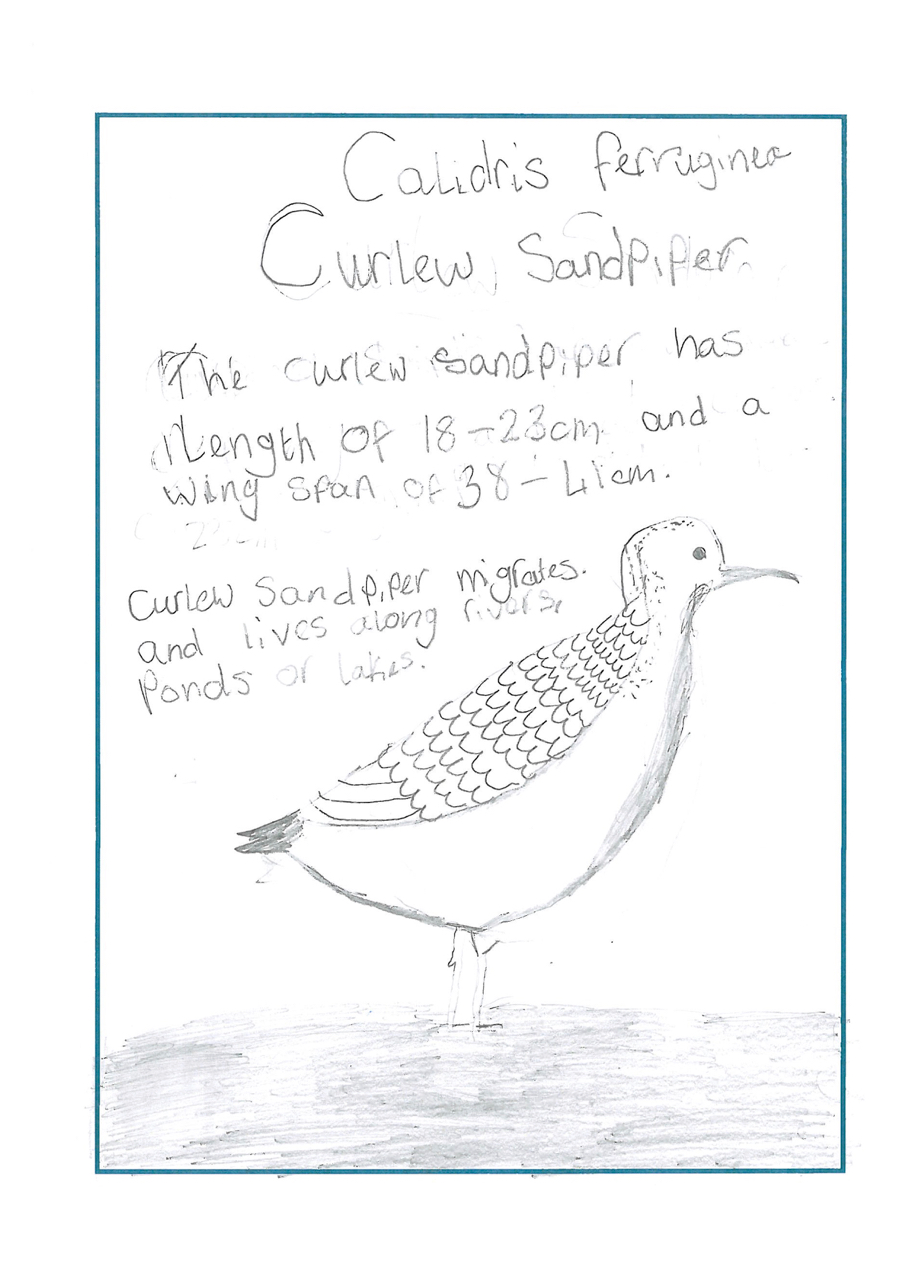 Calidris ferruginea
Curlew Sandpiper.
The curlew sandpiper has
length of 18-23cm and a
wing span of 38-41cm.
Curlew Sandpiper migrates.
and lives along rivers,
Ponds or lakes.